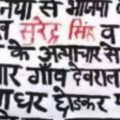 निया से भाजपा
त सुरेन्द्र सिंह व
के अत्याचार से
गाँव देवराल
धर छोड़कर